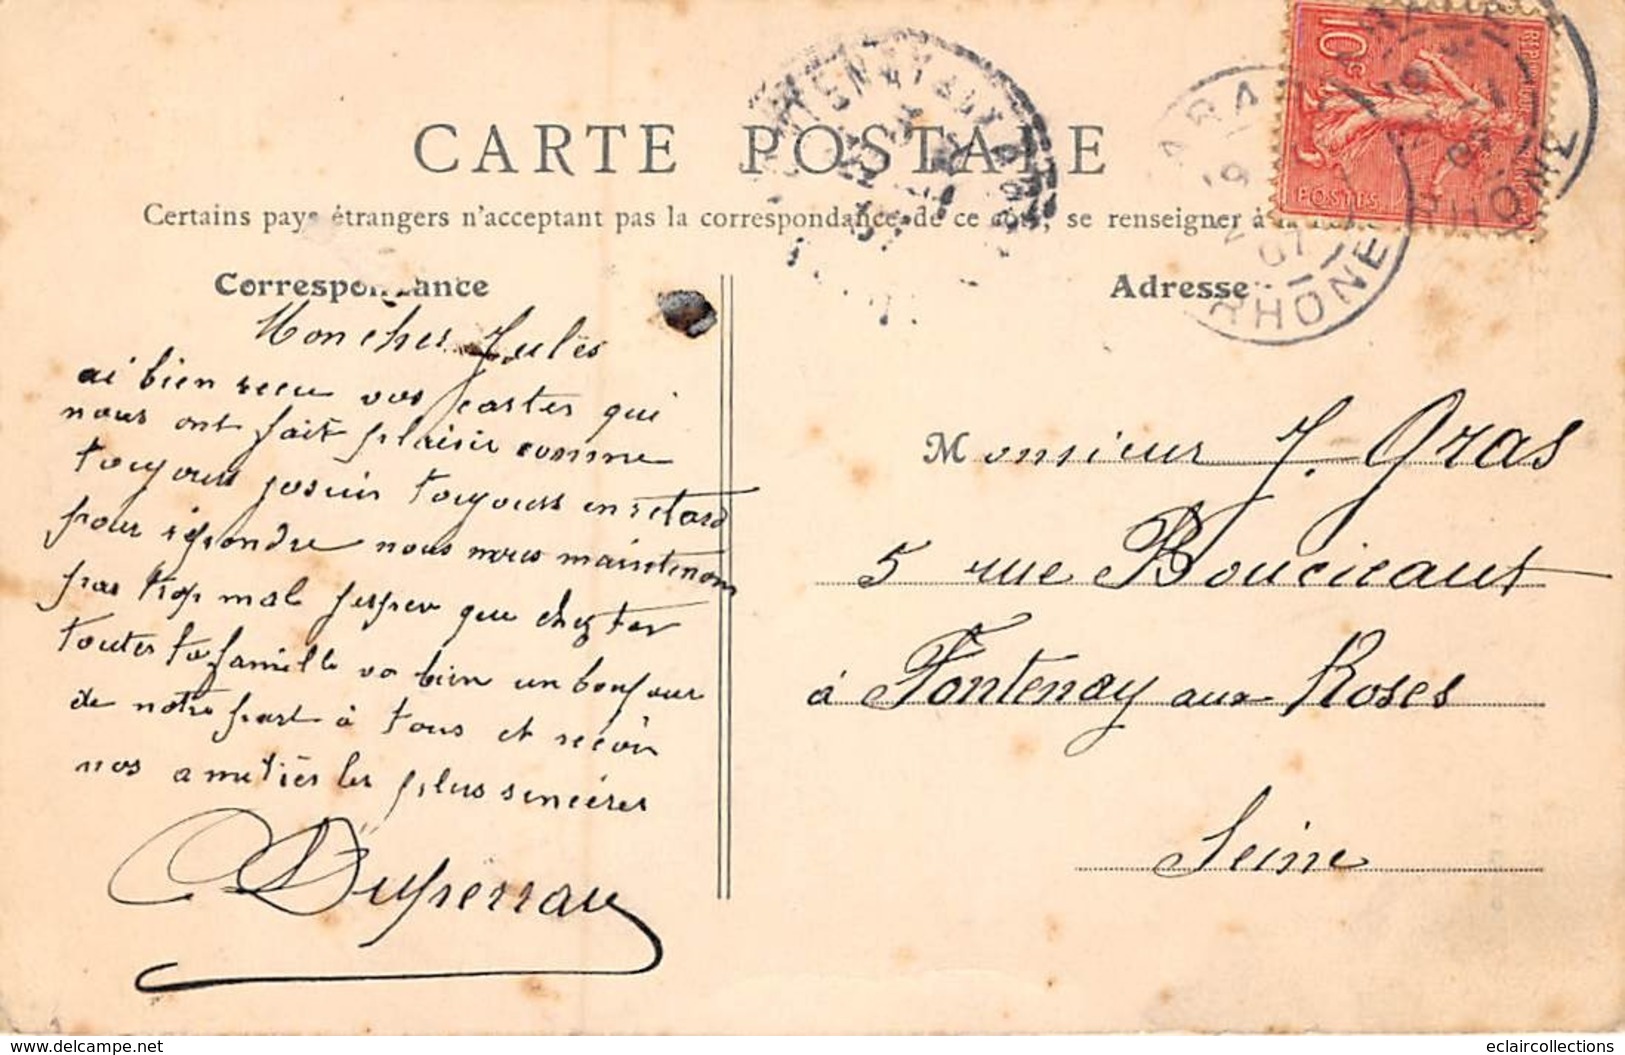 CARTE POSTALE
Certains pays étrangers n'acceptant pas la correspondance de ce côté, se renseigner à la
Correspondance
Adresse
Mon cher Jules
ai bien recu vos cartes qui
nous ont fait plaisir comme
toujours josuis toujours en retard
pour répondre nous nous maintenons
pas trop mal jesper que chez toi
toutes ta famille va bien un bonjour
de notre part à tous et reçois
nos amitiés les plus sincéres
Duperray
Monsieur J. Gras
5 rue Boucicaut
à Fontenay aux Roses
Seine
10c
POSTES
RHONE
07
RHONE
07
delcampe.net
eclaircollections